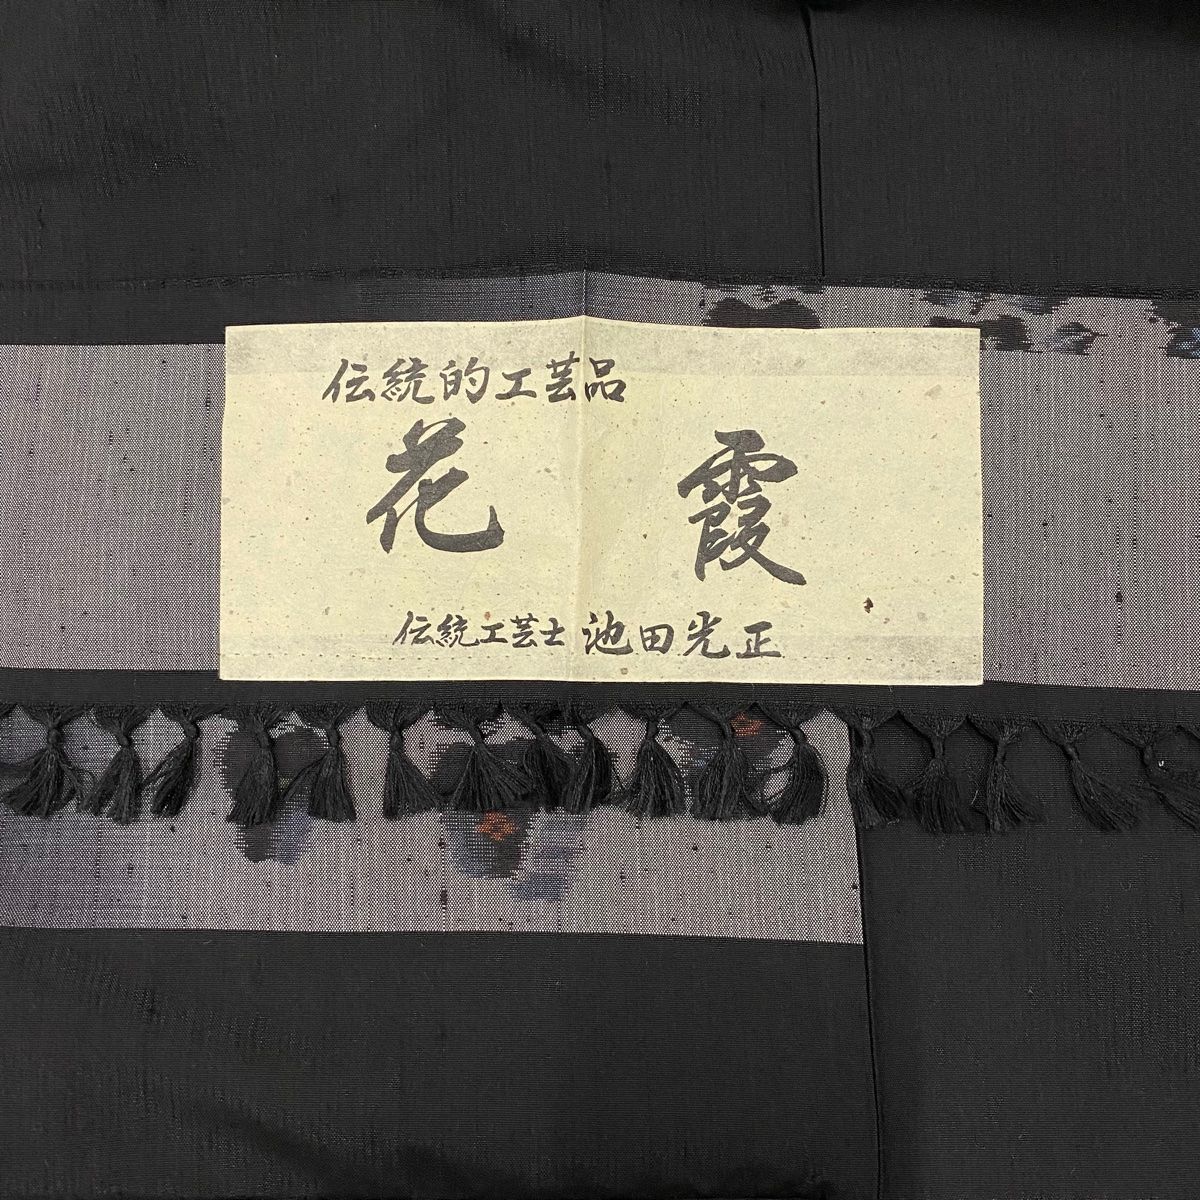 伝統的工芸品
花霞
伝統工芸士 池田光正